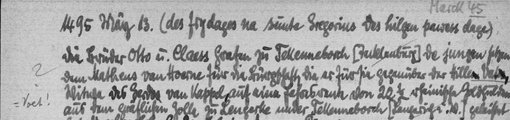 March 45
1495 März 13. (des frydages na sunte Gregorius des hilgen pawess dage).
Die Brüder Otto u. Claess Grafen zu Tekenneborch [Tecklenburg] de jungen
dem Matheus van Hoerne für die Bürgschaft die er für sie gegenüber der
Witwe des Gerdes van Kappel, auf eine Jahresrente von 22 ½ rheinische Goldgulden
aus dem gräflichen Zolle zu Lengerke unter Tekenneborch [Lengerich i. W.] geleistet